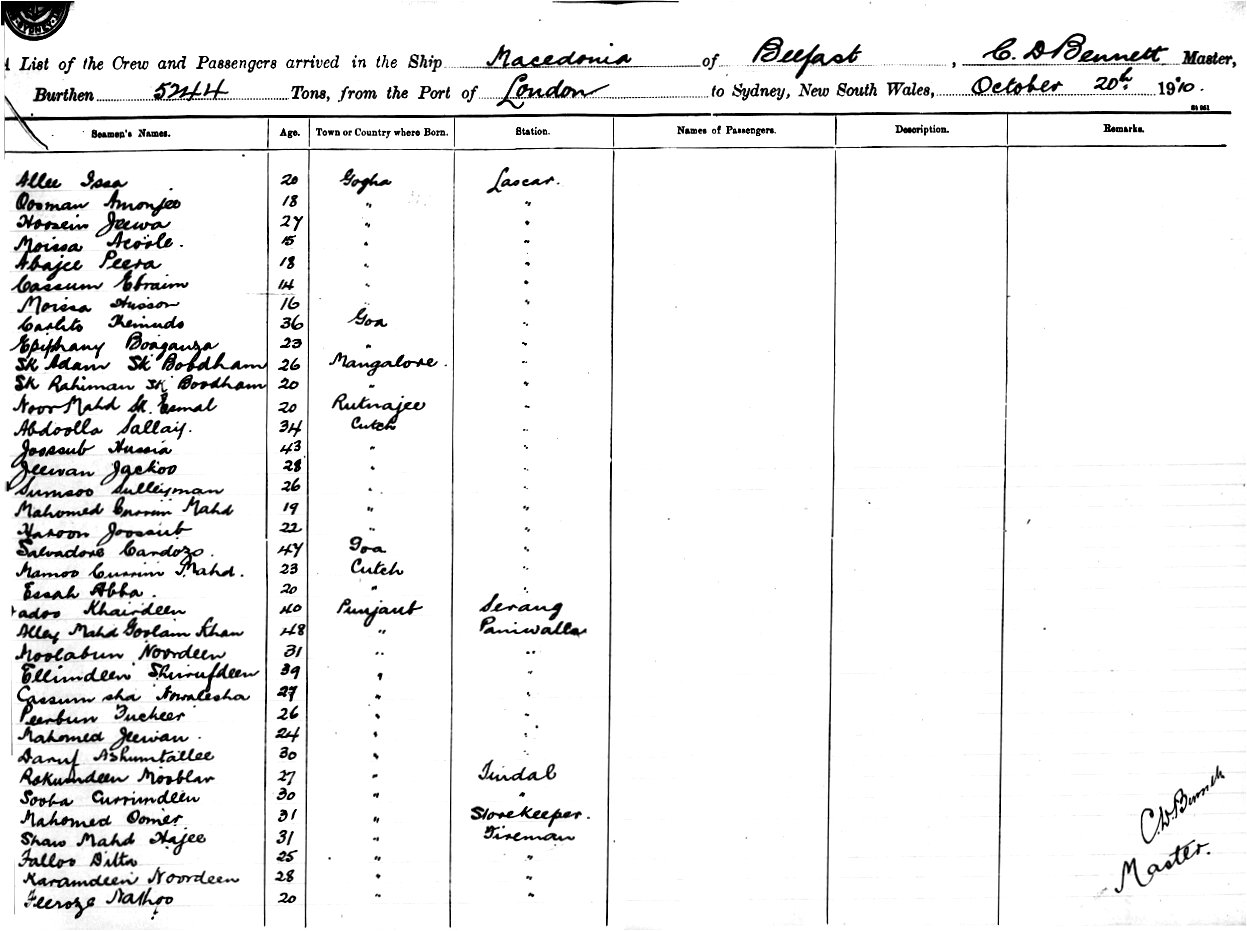 SYDNEY
List of the Crew and Passengers arrived in the Ship Macedonia of Belfast, C. D Bennett Master,
Burthen 5244 Tons, from the Port of London to Sydney, New South Wales, October 20th 1910.
Seamen's Names. Age. Town or Country where Born. Station. Names of Passengers. Description. Remarks.
Allee Issa 20 Gogha Lascar.
Oosman Amonjee 18 " "
Hoosein Jeewa 27 " "
Moissa 15 " "
Abajee Peera 18 " "
Cassum Ebraim 14 " "
Moissa Husson 16 "
Carlito 36 Goa "
Epiphany Boaganza 23 " "
Sk Adam Sk Bobdham 26 Mangalore. "
Sk Rahiman Sk Boodham 20 " "
Noor Mahd Sk. Esmal 20 Rutnajee "
Abdoolla Sallay. 34 Cutch "
Joossub Hussia 43 " "
Jeewan Jackoo 28 " "
Sumsoo Sulleyman 26 " "
Mahomed Currim Mahd 19 " "
Haroon Joossub 22 " "
Salvadore Cardozo. 47 Goa "
Mamoo Currim Mahd. 23 Cutch "
Essah Abba. 20 " "
adoo Khairdeen 40 Punjaub Serang
Alley Mahd Goolam Khan 48 " Paniwalla
Moolabun Noordeen 31 " "
Ellimdeen Shirufdeen 39 " "
Cassum sha Nowalesha 27 " "
Peerbun Fucheer 26 " "
Mahomed Jeewan. 24 " "
Daruf Ashumtallee 30 " "
Rokumdeen Mooblar 27 " Tindal
Sooba Currimdeen 30 " "
Mahomed Oomer 31 " Storekeeper.
Shaw Mahd Hajee 31 " Fireman
Falloo Ditta 25 " "
Karamdeen Noordeen 28 " "
Feeroze Nathoo 20 " "
C D Bennett
Master.